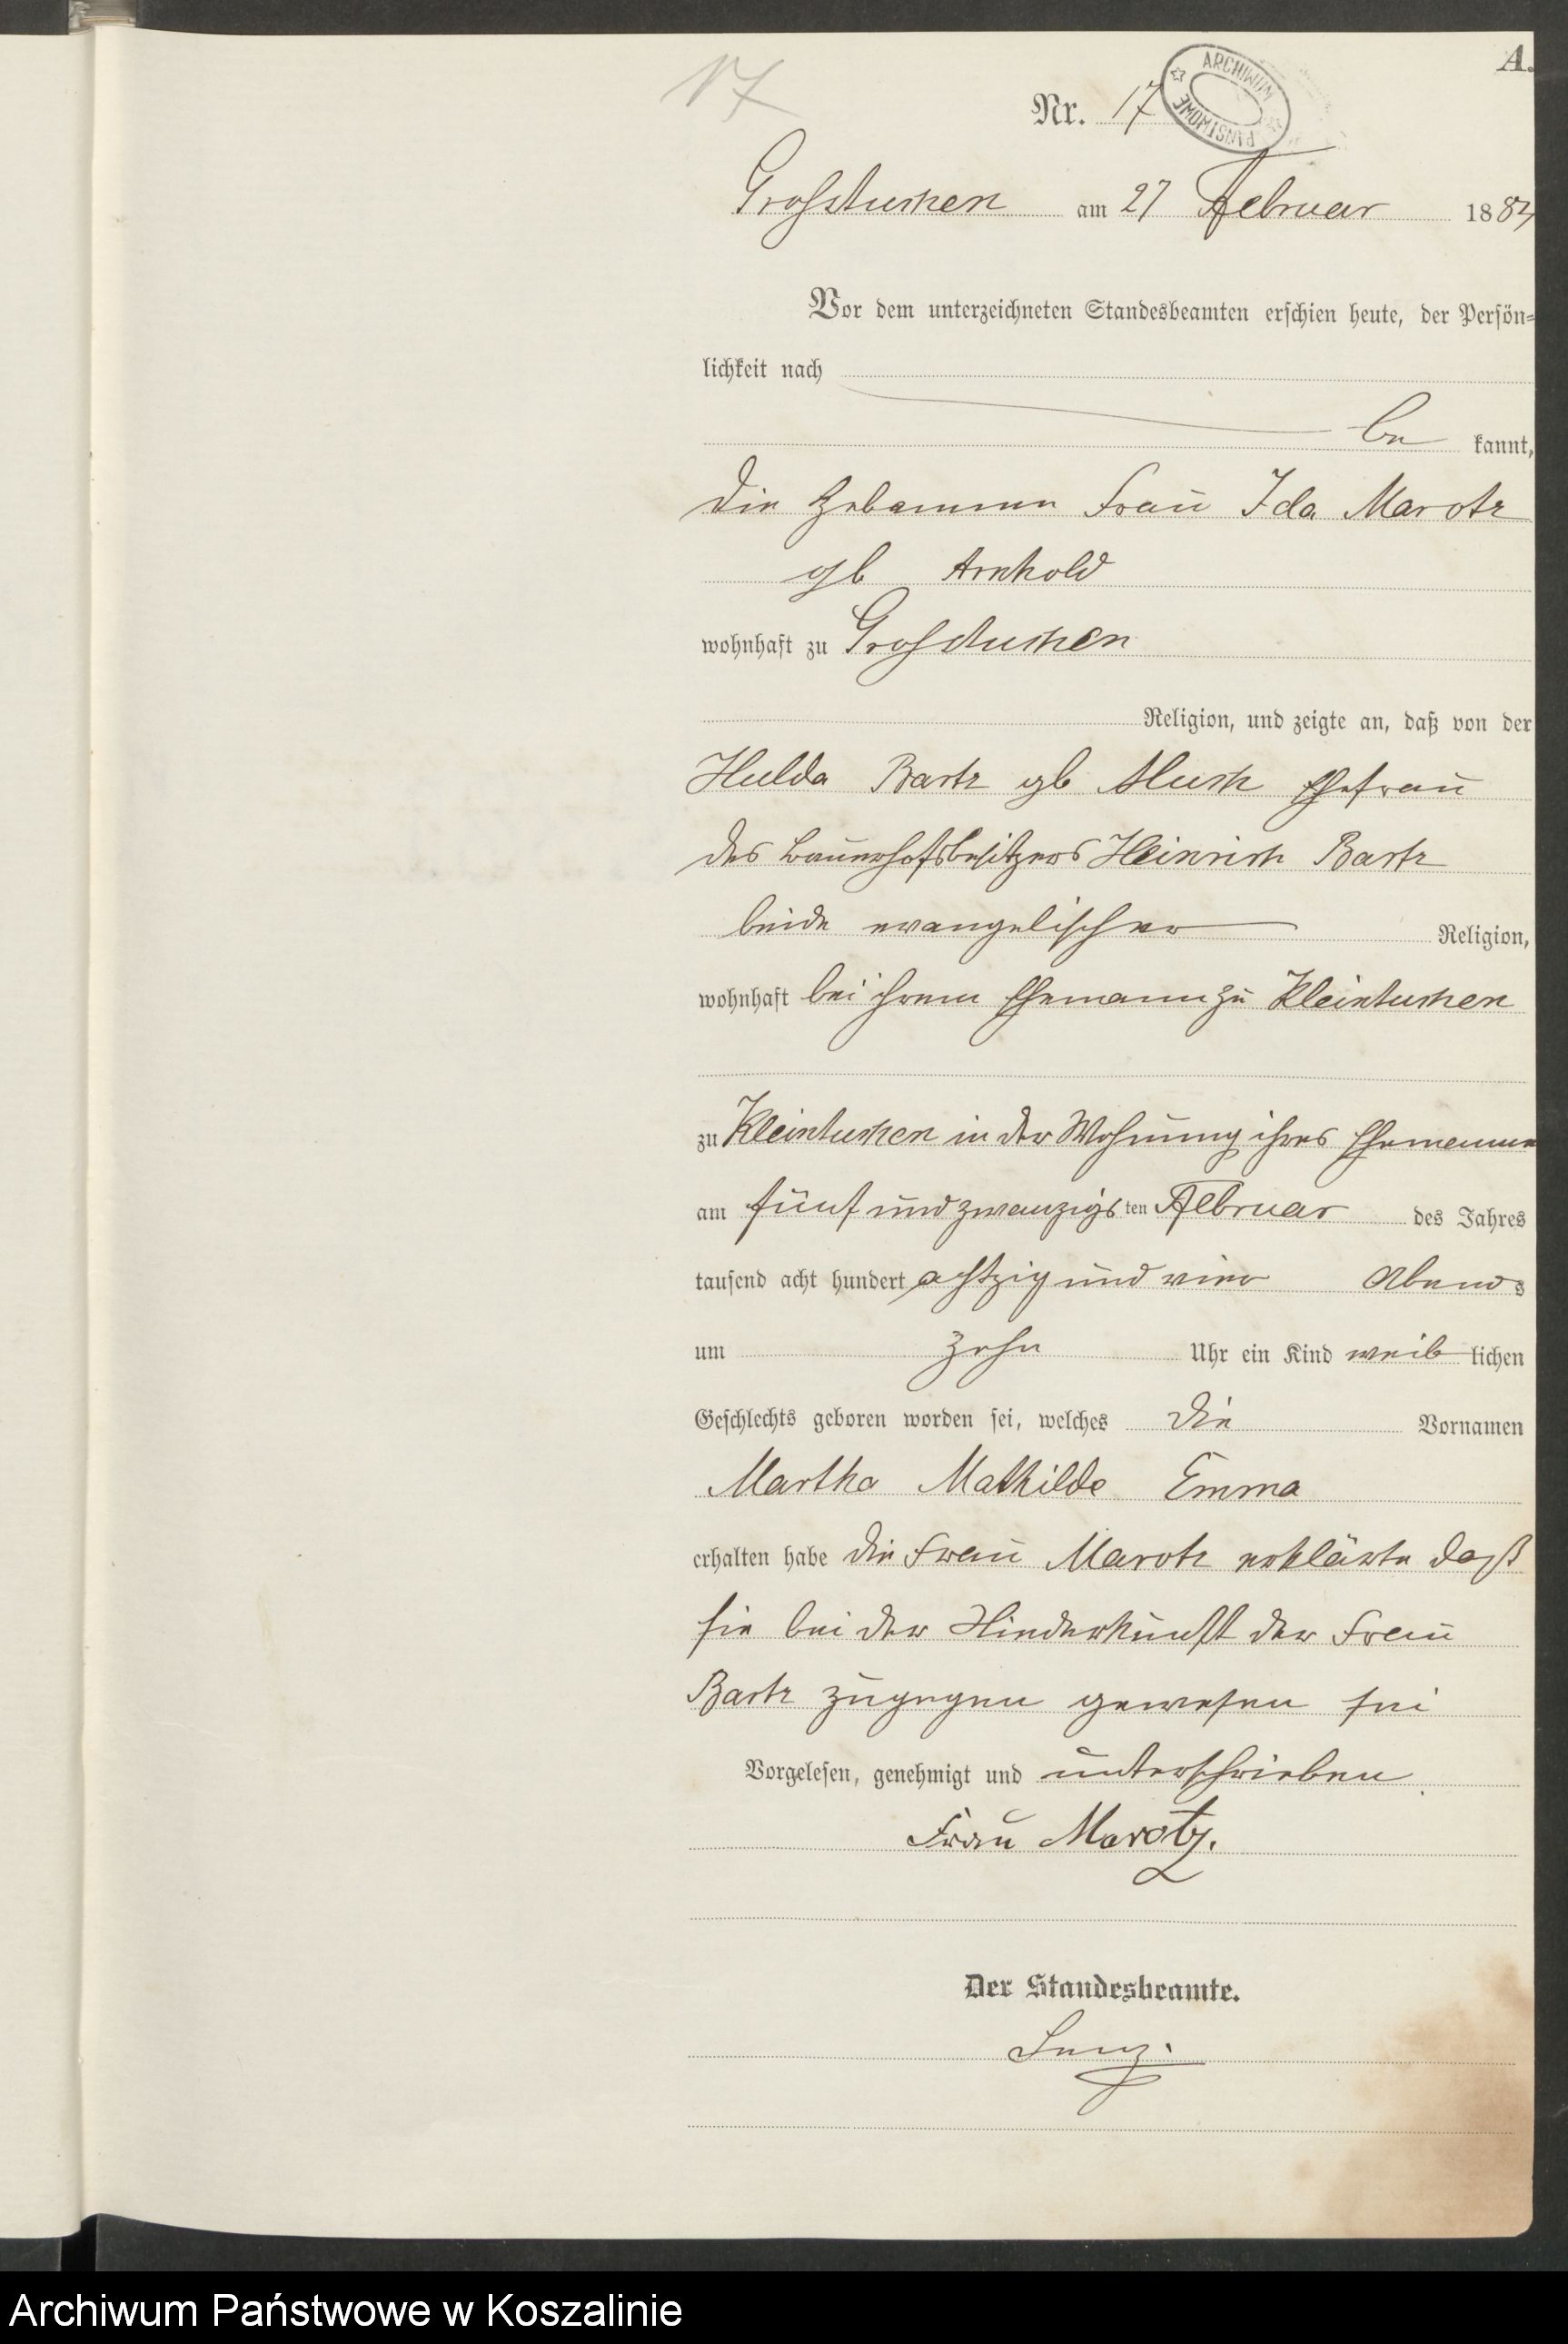 A.
17
Nr. 17
ARCHIWUM PAŃSTWOWE
Grosstuchen am 27 Februar 1884
Vor dem unterzeichneten Standesbeamten erschien heute, der Persön-
lichkeit nach
be kannt,
die Hebamme Frau Ida Marotz
gb Arnhold
wohnhaft zu Grosstuchen
Religion, und zeigte an, daß von der
Hulda Bartz gb Ehefrau
des Bauerhofsbesitzers Heinrich Bartz
beide evangelischer Religion,
wohnhaft bei ihrem Ehemann zu Kleintuchen
zu Kleintuchen in der Wohnung ihres Ehemannes
am fünf und zwanzigs ten Februar des Jahres
tausend acht hundert achtzig und vier Abends
um zehn Uhr ein Kind weib lichen
Geschlechts geboren worden sei, welches die Vornamen
Martha Mathilde Emma
erhalten habe die Frau Marotz erklärte daß
sie bei der Niederkunft der Frau
Bartz zugegen gewesen sei
Vorgelesen, genehmigt und unterschrieben
Frau Marotz.
Der Standesbeamte.
Archiwum Państwowe w Koszalinie